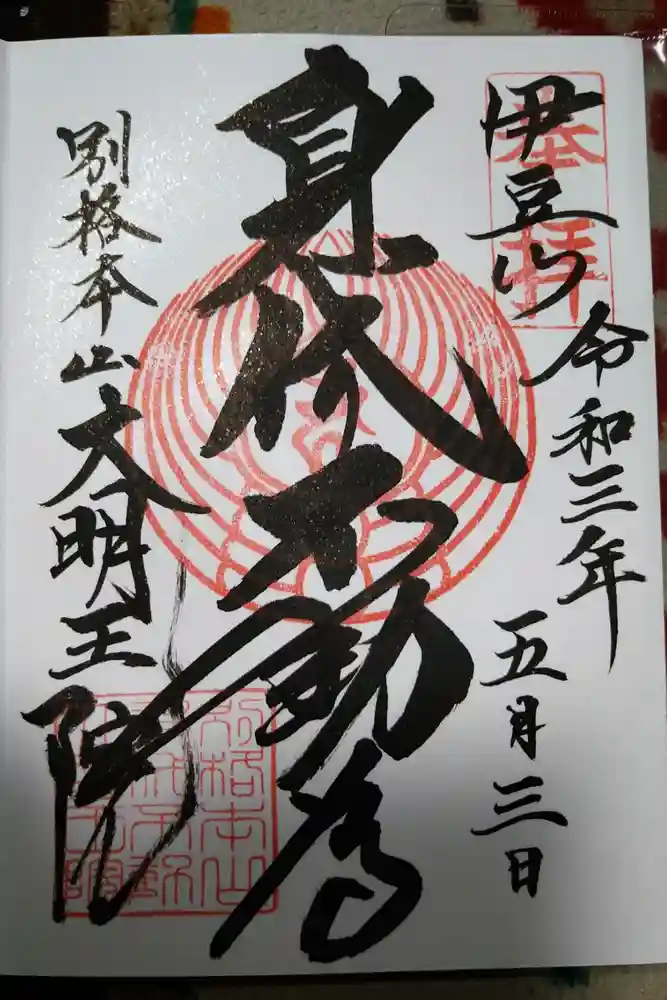 奉拝
伊豆山
令和三年
五月三日
身代不動尊
別格本山
大明王院